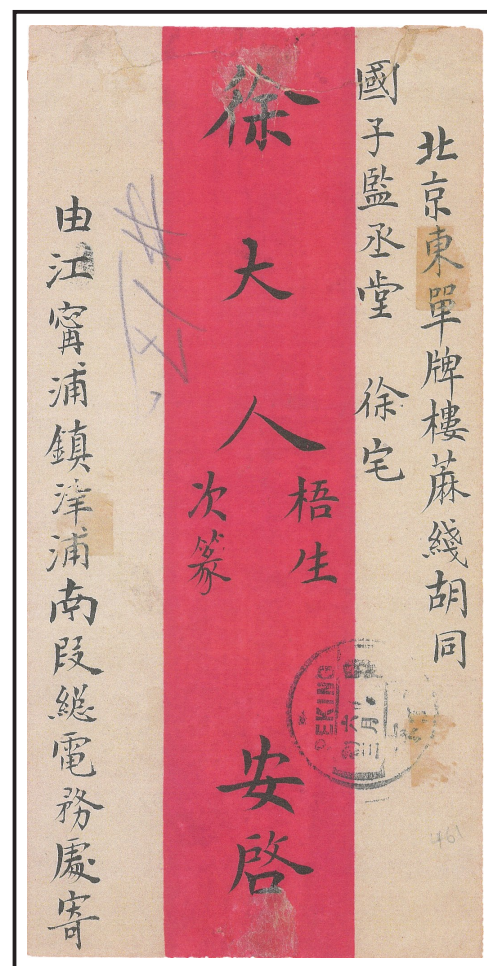 北京東單牌樓蔴綫胡同
國子監丞堂 徐宅
徐大人
梧生
次篆
安啓
由江寧浦鎮津浦南段總電務處寄
PEKING
461